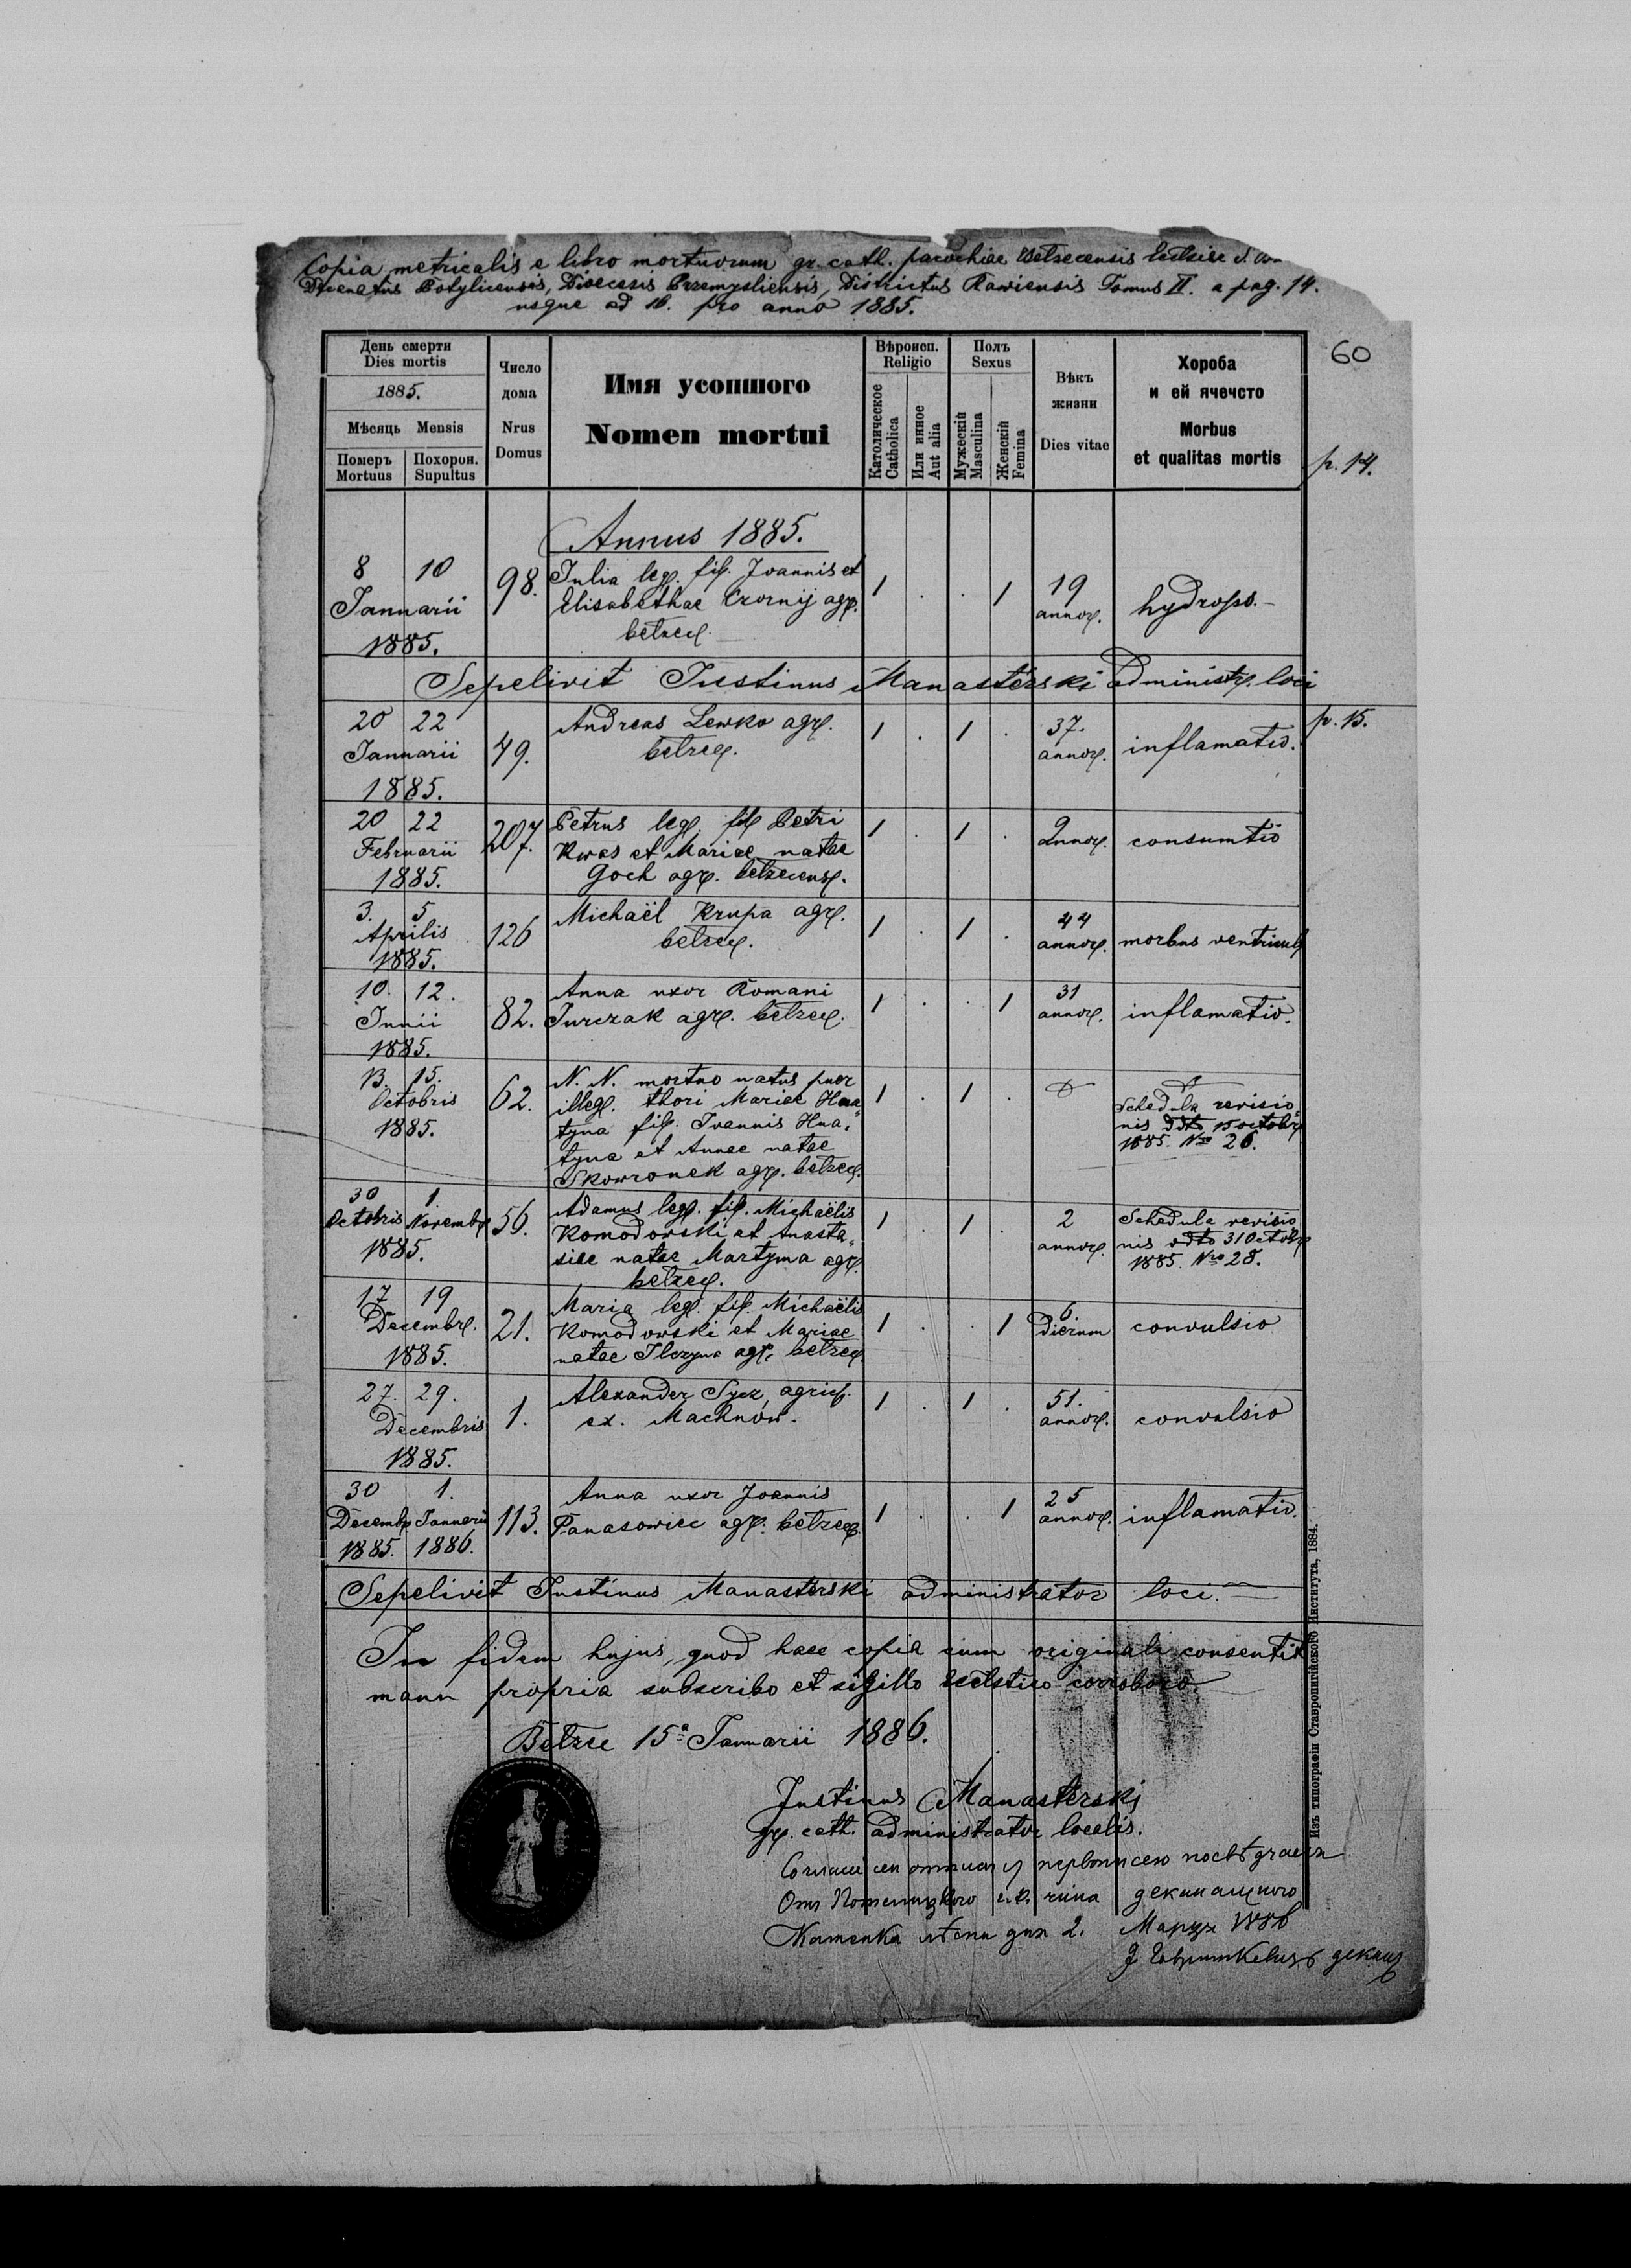 Copia metricalis e libro mortuorum gr. cath. parochiae Betzecensis
Decanatus Potylicensis, Dioecesis Przemysliensis, Districtus Rawiensis Tomus II. a pag. 14.
usque ad 16. pro anno 1885.
60
День смерти
Dies mortis
1885.
Мѣсяць Mensis
Померъ Mortuus
Похорон. Supultus
Число дома
Nrus Domus
Имя усопшого
Nomen mortui
Вѣроисп.
Religio
Католическое
Catholica
Или инное
Aut alia
Полъ
Sexus
Мужескій
Masculina
Женскій
Femina
Вѣкъ жизни
Dies vitae
Хороба
и ей ячечсто
Morbus
et qualitas mortis
p. 14.
Annus 1885.
8 10 98. Julia leg. fil. Joannis et 1 . . 1 19 hydrops.
Januarii Elisabethae Czornij agr. annor.
1885. betzec.
Sepelivit Justinus Manasterski administr. loci
20 22 49. Andreas Lewko agr. 1 . 1 . 37. inflamatio. p. 15.
Januarii betzec. annor.
1885.
20 22 207. Petrus leg. fil. Petri 1 . 1 . 9 consumtio
Februarii Kwas et Mariae natae annor.
1885. Goch agr. betzecens.
3. 5 126 Michaël Krupa agr. 1 . 1 . 44 morbus ventricul
Aprilis betzec. annor.
1885.
10. 12. 82. Anna uxor Romani 1 . . 1 31 inflamatio.
Junii Jurczak agr. betzec. annor.
1885.
13. 15. 62. N. N. mortuo natus puer 1 . 1 .
Octobris illeg. thori Mariae Hna- Schedula revisio-
1885. tyna fil. Joannis Hna- nis ddto 15 octobr
tyna et Annae natae 1885. Nro 26.
Skowronek agr. betzec.
30 1. 56. Adamus leg. fil. Michaëlis 1 . 1 . 2 Schedula revisio
Octobris Novembr Komodowski et Anasta- annor. nis ddto 31 Octobr
1885. siae natae Martyma agr. 1885. Nro 28.
betzec.
17 19 21. Maria leg. fil. Michaëlis 1 . . 1 6. convulsio
Decembr. Komodowski et Mariae dierum
1885. natae Ilczyna agr. betzec
27. 29. 1. Alexander Sycz, agric. 1 . 1 . 51. convulsio
Decembris ex. Machnów. annor.
1885.
30 1. 113. Anna uxor Joannis 1 . . 1 25 inflamatio.
Decembr Januarii Panasowiec agr. betzec. annor.
1885. 1886.
Sepelivit Justinus Manasterski administrator loci.
In fidem hujus, quod haec copia cum originali consentit
manu propria subscribo et sigillo corroboro
Betzec 15a Januarii 1886.
Justinus Manasterski
gr. cath. administrator localis.
2. Марця 1886
декан
Изъ типографіи Ставропигійского Института, 1884.